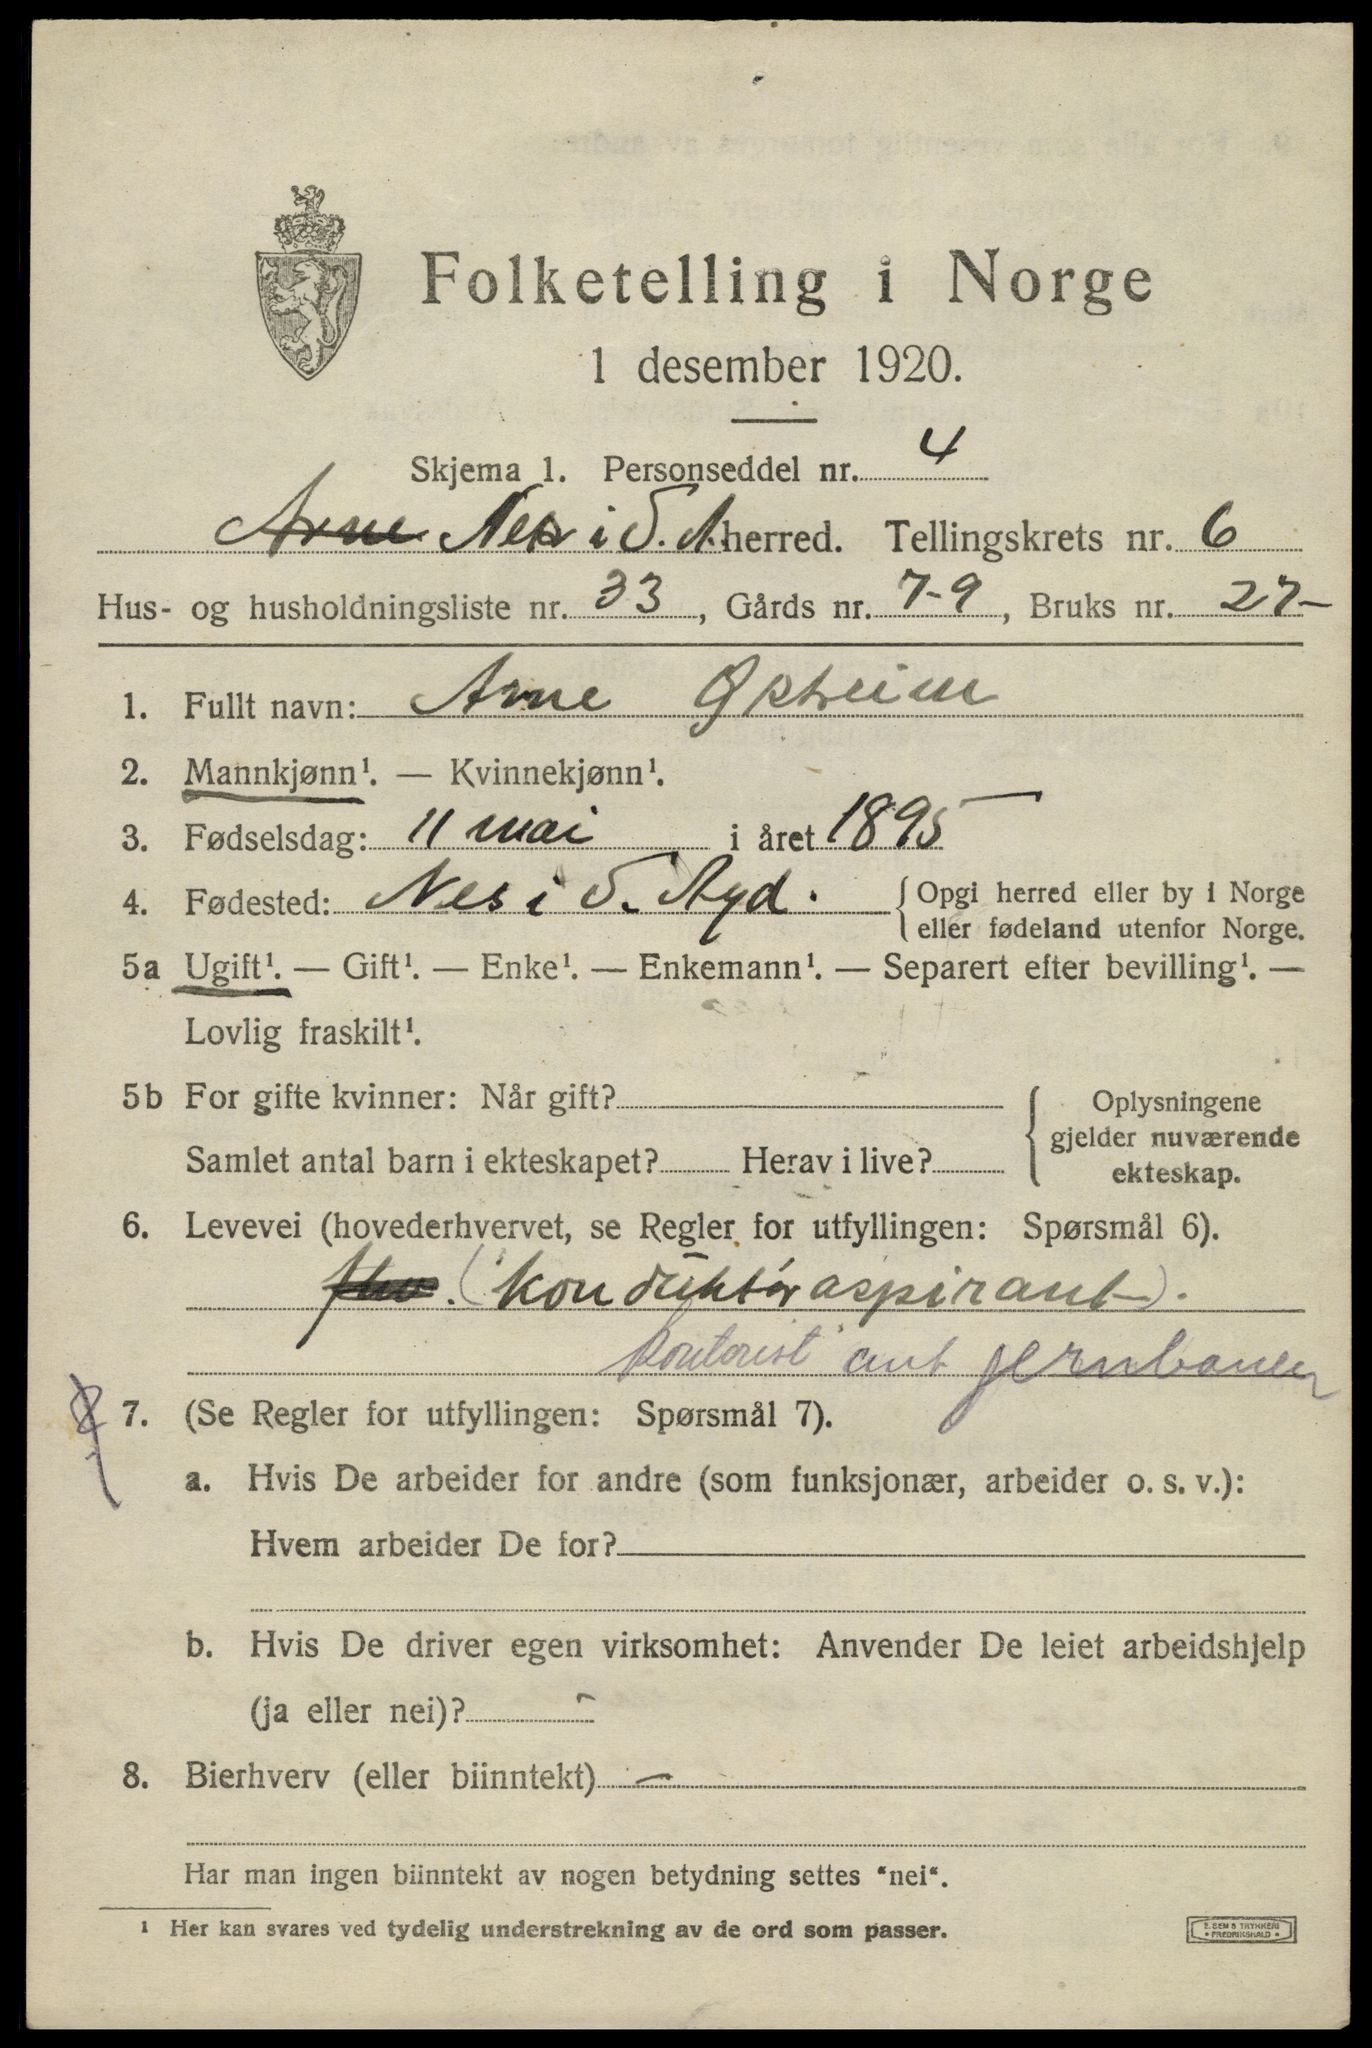 Folketelling i Norge
1 desember 1920.
Skjema 1. Personseddel nr. 4
Arne Nes i S. A. herred. Tellingskrets nr. 6
Hus- og husholdningsliste nr. 33, Gårds nr. 7-9, Bruks nr. 27-
1. Fullt navn: Arne Øxheim
2. Mannkjønn¹. — Kvinnekjønn¹.
3. Fødselsdag: 11 mai i året 1895
4. Fødested: Nes i S. Aqd. {Opgi herred eller by i Norge
eller fødeland utenfor Norge.
5a Ugift¹. — Gift¹. — Enke¹. — Enkemann¹. — Separert efter bevilling¹. —
Lovlig fraskilt¹.
5b For gifte kvinner: Når gift?
Samlet antal barn i ekteskapet? Herav i live?
{Oplysningene
gjelder nuværende
ekteskap.
6. Levevei (hovederhvervet, se Regler for utfyllingen: Spørsmål 6).
(konduktøraspirant).
kontorist jernbanen
7. (Se Regler for utfyllingen: Spørsmål 7).
a. Hvis De arbeider for andre (som funksjonær, arbeider o. s. v.):
Hvem arbeider De for?
b. Hvis De driver egen virksomhet: Anvender De leiet arbeidshjelp
(ja eller nei)? -
8. Bierhverv (eller biinntekt) —
Har man ingen biinntekt av nogen betydning settes "nei".
¹ Her kan svares ved tydelig understrekning av de ord som passer.
E. SEMS TRYKKERI
• FREDRIKSHALD •